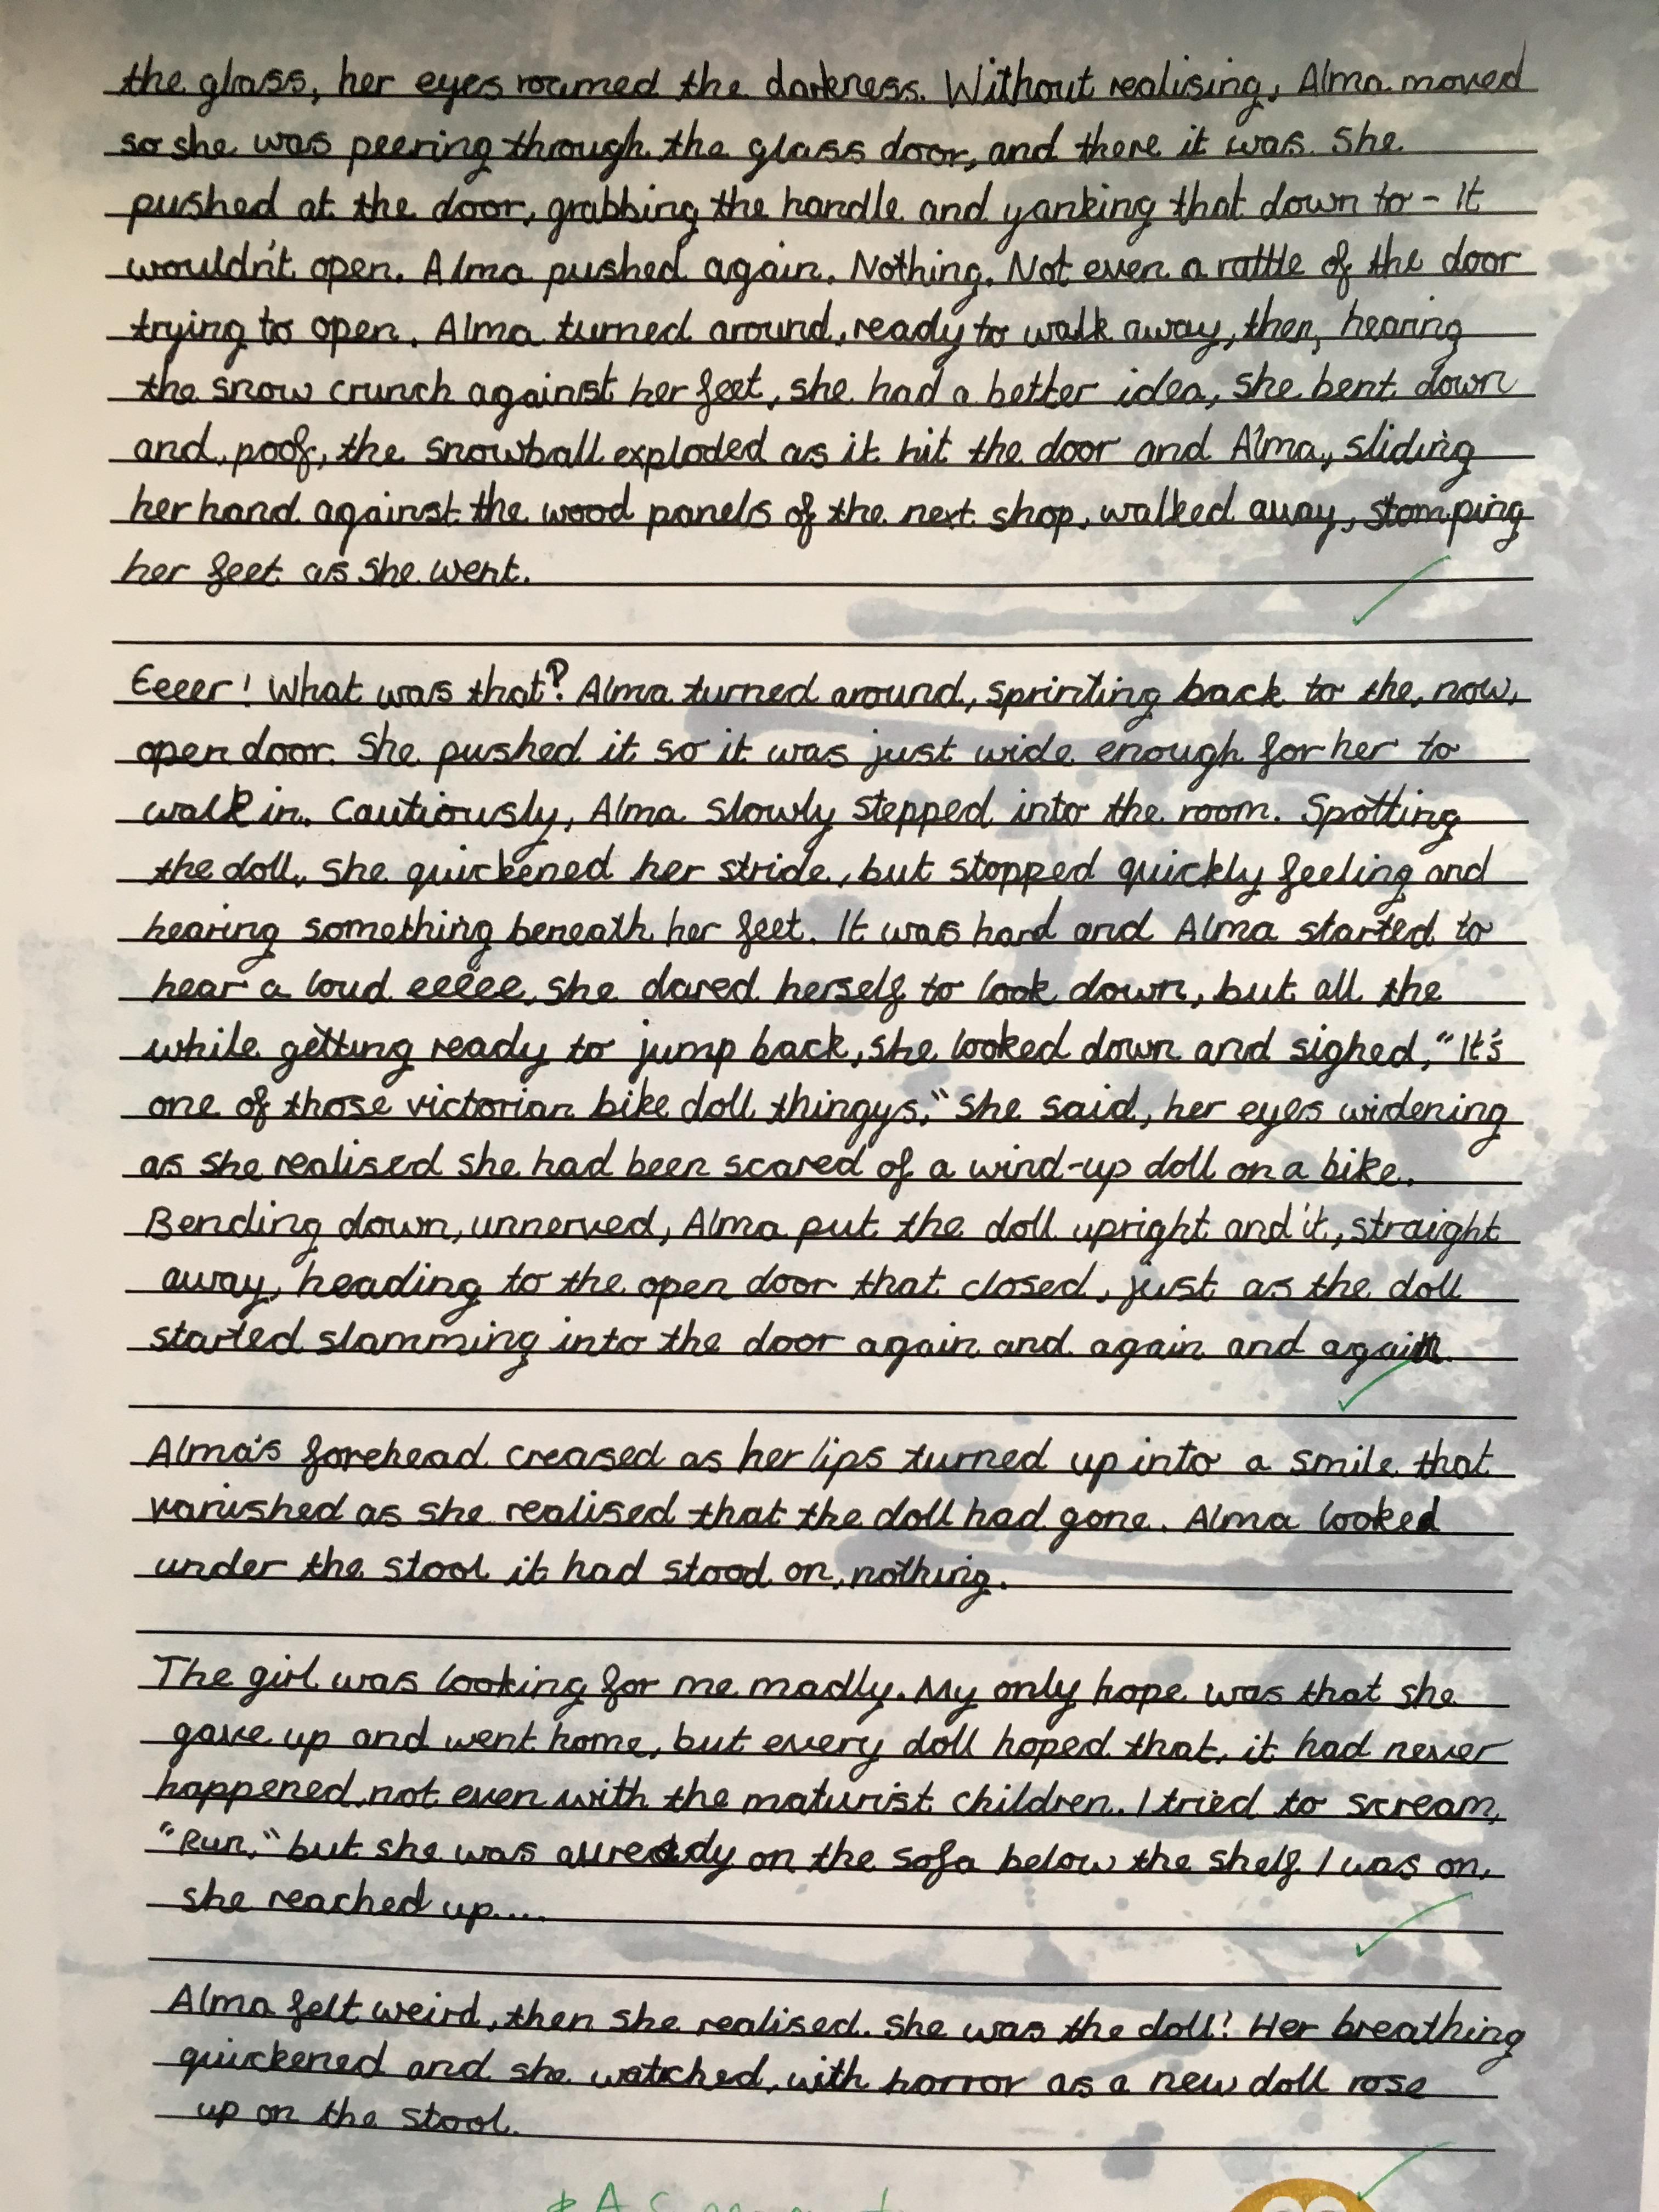 the glass, her eyes roamed the darkness. Without realising, Alma moved
so she was peering through the glass door, and there it was. She
pushed at the door, grabbing the handle and yanking that down to - It
wouldn't open. Alma pushed again. Nothing. Not even a rattle of the door
trying to open. Alma turned around, ready to walk away, then, hearing
the snow crunch against her feet, she had a better idea, she bent down
and, poof, the snowball exploded as it hit the door and Alma, sliding
her hand against the wood panels of the next shop, walked away, stomping
her feet as she went.
Eeeer! What was that? Alma turned around, sprinting back to the, now,
open door. She pushed it so it was just wide enough for her to
walk in. Cautiously, Alma slowly stepped into the room. Spotting
the doll, she quickened her stride, but stopped quickly feeling and
hearing something beneath her feet. It was hard and Alma started to
hear a loud eeeee, she dared herself to look down, but all the
while getting ready to jump back, she looked down and sighed, "It's
one of those victorian bike doll thingys," She said, her eyes widening
as she realised she had been scared of a wind-up doll on a bike.
Bending down, unnerved, Alma put the doll upright and it, straight
away, heading to the open door that closed, just as the doll
started slamming into the door again and again and again.
Alma's forehead creased as her lips turned up into a smile that
vanished as she realised that the doll had gone. Alma looked
under the stool it had stood on, nothing.
The girl was looking for me madly. My only hope was that she
gave up and went home, but every doll hoped that, it had never
happened, not even with the maturist children. I tried to scream,
"Run," but she was already on the sofa below the shelf I was on,
she reached up....
Alma felt weird, then she realised. She was the doll! Her breathing
quickened and she watched, with horror as a new doll rose
up on the stool.